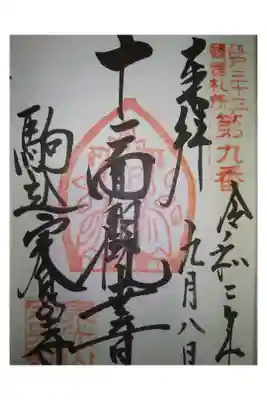 江戸三十三
観音札所第九番
令和二年
九月八日
奉拝
十一面観世音
駒込定泉寺